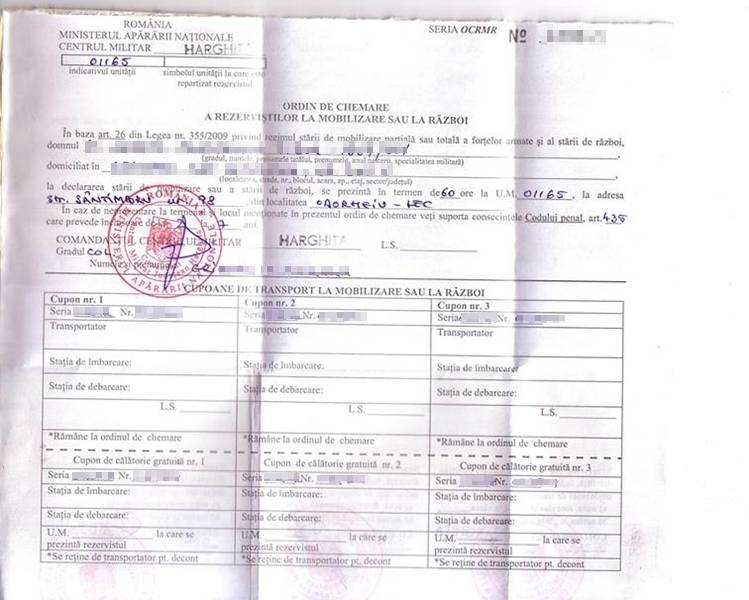 ROMÂNIA
MINISTERUL APĂRĂRII NAȚIONALE
CENTRUL MILITAR HARGHITA
SERIA OCRMR Nº
01165
indicativul unității
simbolul unității la care este repartizat rezervistul
ORDIN DE CHEMARE
A REZERVIȘTILOR LA MOBILIZARE SAU LA RĂZBOI
În baza art. 26 din Legea nr. 355/2009 privind regimul stării de mobilizare parțială sau totală a forțelor armate și al stării de război,
domnul
(gradul, numele, prenumele tatălui, prenumele, anul nașterii, specialitatea militară)
domiciliat în
(localitatea, strada, nr., blocul, scara, ap., etaj, sector/județul)
la declararea stării de mobilizare sau a stării de război, se prezintă în termen de 60 ore la U.M. 01165, la adresa
str. SÂNTIMBRU nr. 98, din localitatea
În caz de neprezentare la termenul și locul menționate în prezentul ordin de chemare veți suporta consecințele Codului penal, art. 435
care prevede închisoare de la ani.
COMANDANTUL CENTRULUI MILITAR HARGHITA L.S.
Gradul COL
Numele și prenumele
CUPOANE DE TRANSPORT LA MOBILIZARE SAU LA RĂZBOI
Cupon nr. 1 Cupon nr. 2 Cupon nr. 3
Seria Nr. Seria Nr. Seria Nr.
Transportator Transportator Transportator
Stația de îmbarcare: Stația de îmbarcare: Stația de îmbarcare:
Stația de debarcare: Stația de debarcare: Stația de debarcare:
L.S. L.S. L.S.
*Rămâne la ordinul de chemare *Rămâne la ordinul de chemare *Rămâne la ordinul de chemare
Cupon de călătorie gratuită nr. 1 Cupon de călătorie gratuită nr. 2 Cupon de călătorie gratuită nr. 3
Seria Nr. Seria Nr. Seria Nr.
Stația de îmbarcare: Stația de îmbarcare: Stația de îmbarcare:
Stația de debarcare: Stația de debarcare: Stația de debarcare:
U.M. la care se U.M. la care se U.M. la care se
prezintă rezervistul prezintă rezervistul prezintă rezervistul
*Se reține de transportator pt. decont *Se reține de transportator pt. decont *Se reține de transportator pt. decont